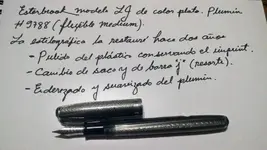 Esterbrook modelo LJ de color plata. Plumín
#9788 (flexible medium).
La estilográfica la restauré hace dos años
- Pulido del plástico conservando el imprint.
- Cambio de saco y de barra "j" (resorte).
- Enderezado y suavizado del plumín.